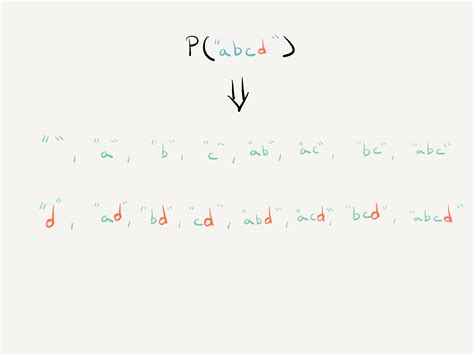 P("abcd")
"", "a", "b", "c", "ab", "ac", "bc", "abc"
"d", "ad", "bd", "cd", "abd", "acd", "bcd", "abcd"